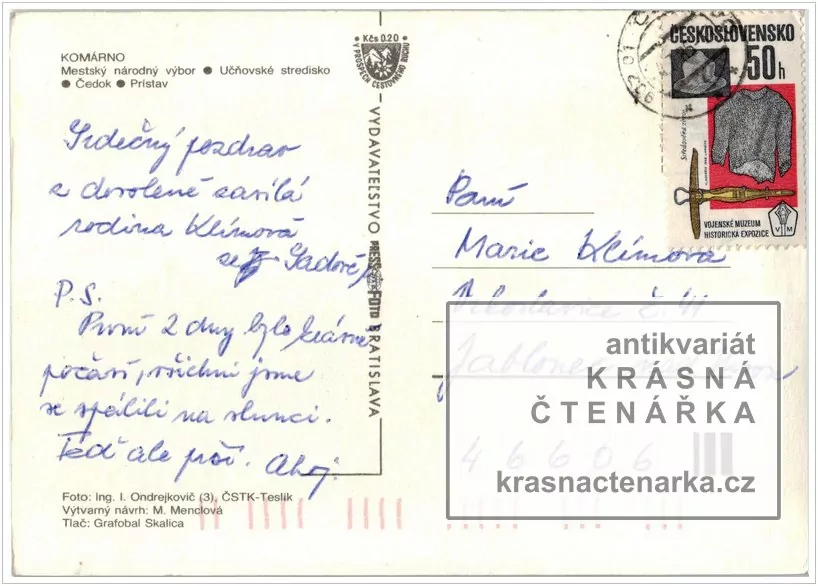 KOMÁRNO
Mestský národný výbor ● Učňovské stredisko
● Čedok ● Prístav
Kčs 0.20
V PROSPECH CESTOVNÉHO RUCHU
Srdečný pozdrav
z dovolené zasílá
rodina Klímová
ze Sadové
P.S.
První 2 dny bylo krásné
počasí, všichni jsme
se spálili na slunci.
Teď ale prší. Ahoj.
VYDAVATEĽSTVO PRESSFOTO BRATISLAVA
Foto: Ing. I. Ondrejkovič (3), ČSTK-Teslík
Výtvarný návrh: M. Menclová
Tlač: Grafobal Skalica
ČESKOSLOVENSKO
50h
VOJENSKÉ MUZEUM
HISTORICKÁ EXPOZICE
V M
932 01
Paní
Marie Klímová
č. 41
Jablonec nad
46606
antikvariát
KRÁSNÁ
ČTENÁŘKA
krasnactenarka.cz